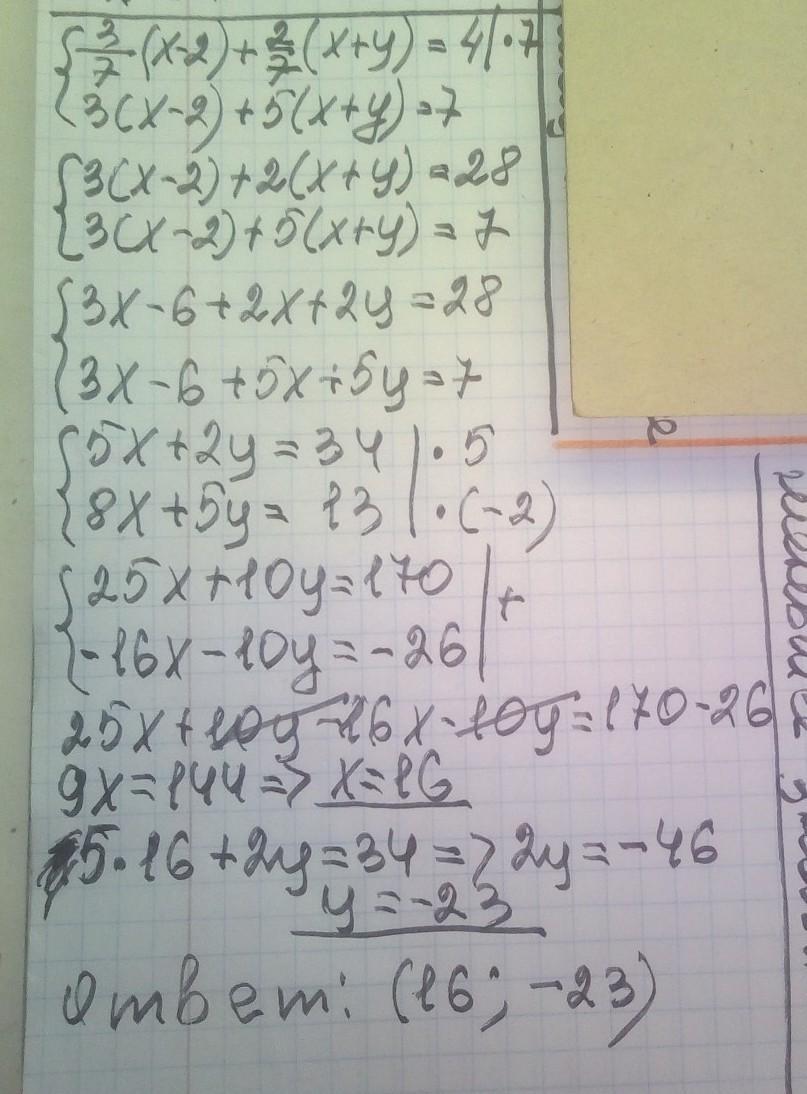 {3/7(x-2)+2/7(x+y)=4|·7
{3(x-2)+5(x+y)=7
{3(x-2)+2(x+y)=28
{3(x-2)+5(x+y)=7
{3x-6+2x+2y=28
{3x-6+5x+5y=7
{5x+2y=34|·5
{8x+5y=13|·(-2)
{25x+10y=170|+
{-16x-10y=-26|
25x+10y-16x-10y=170-26
9x=144=>x=16
5·16+2y=34=>2y=-46
y=-23
Ответ: (16; -23)